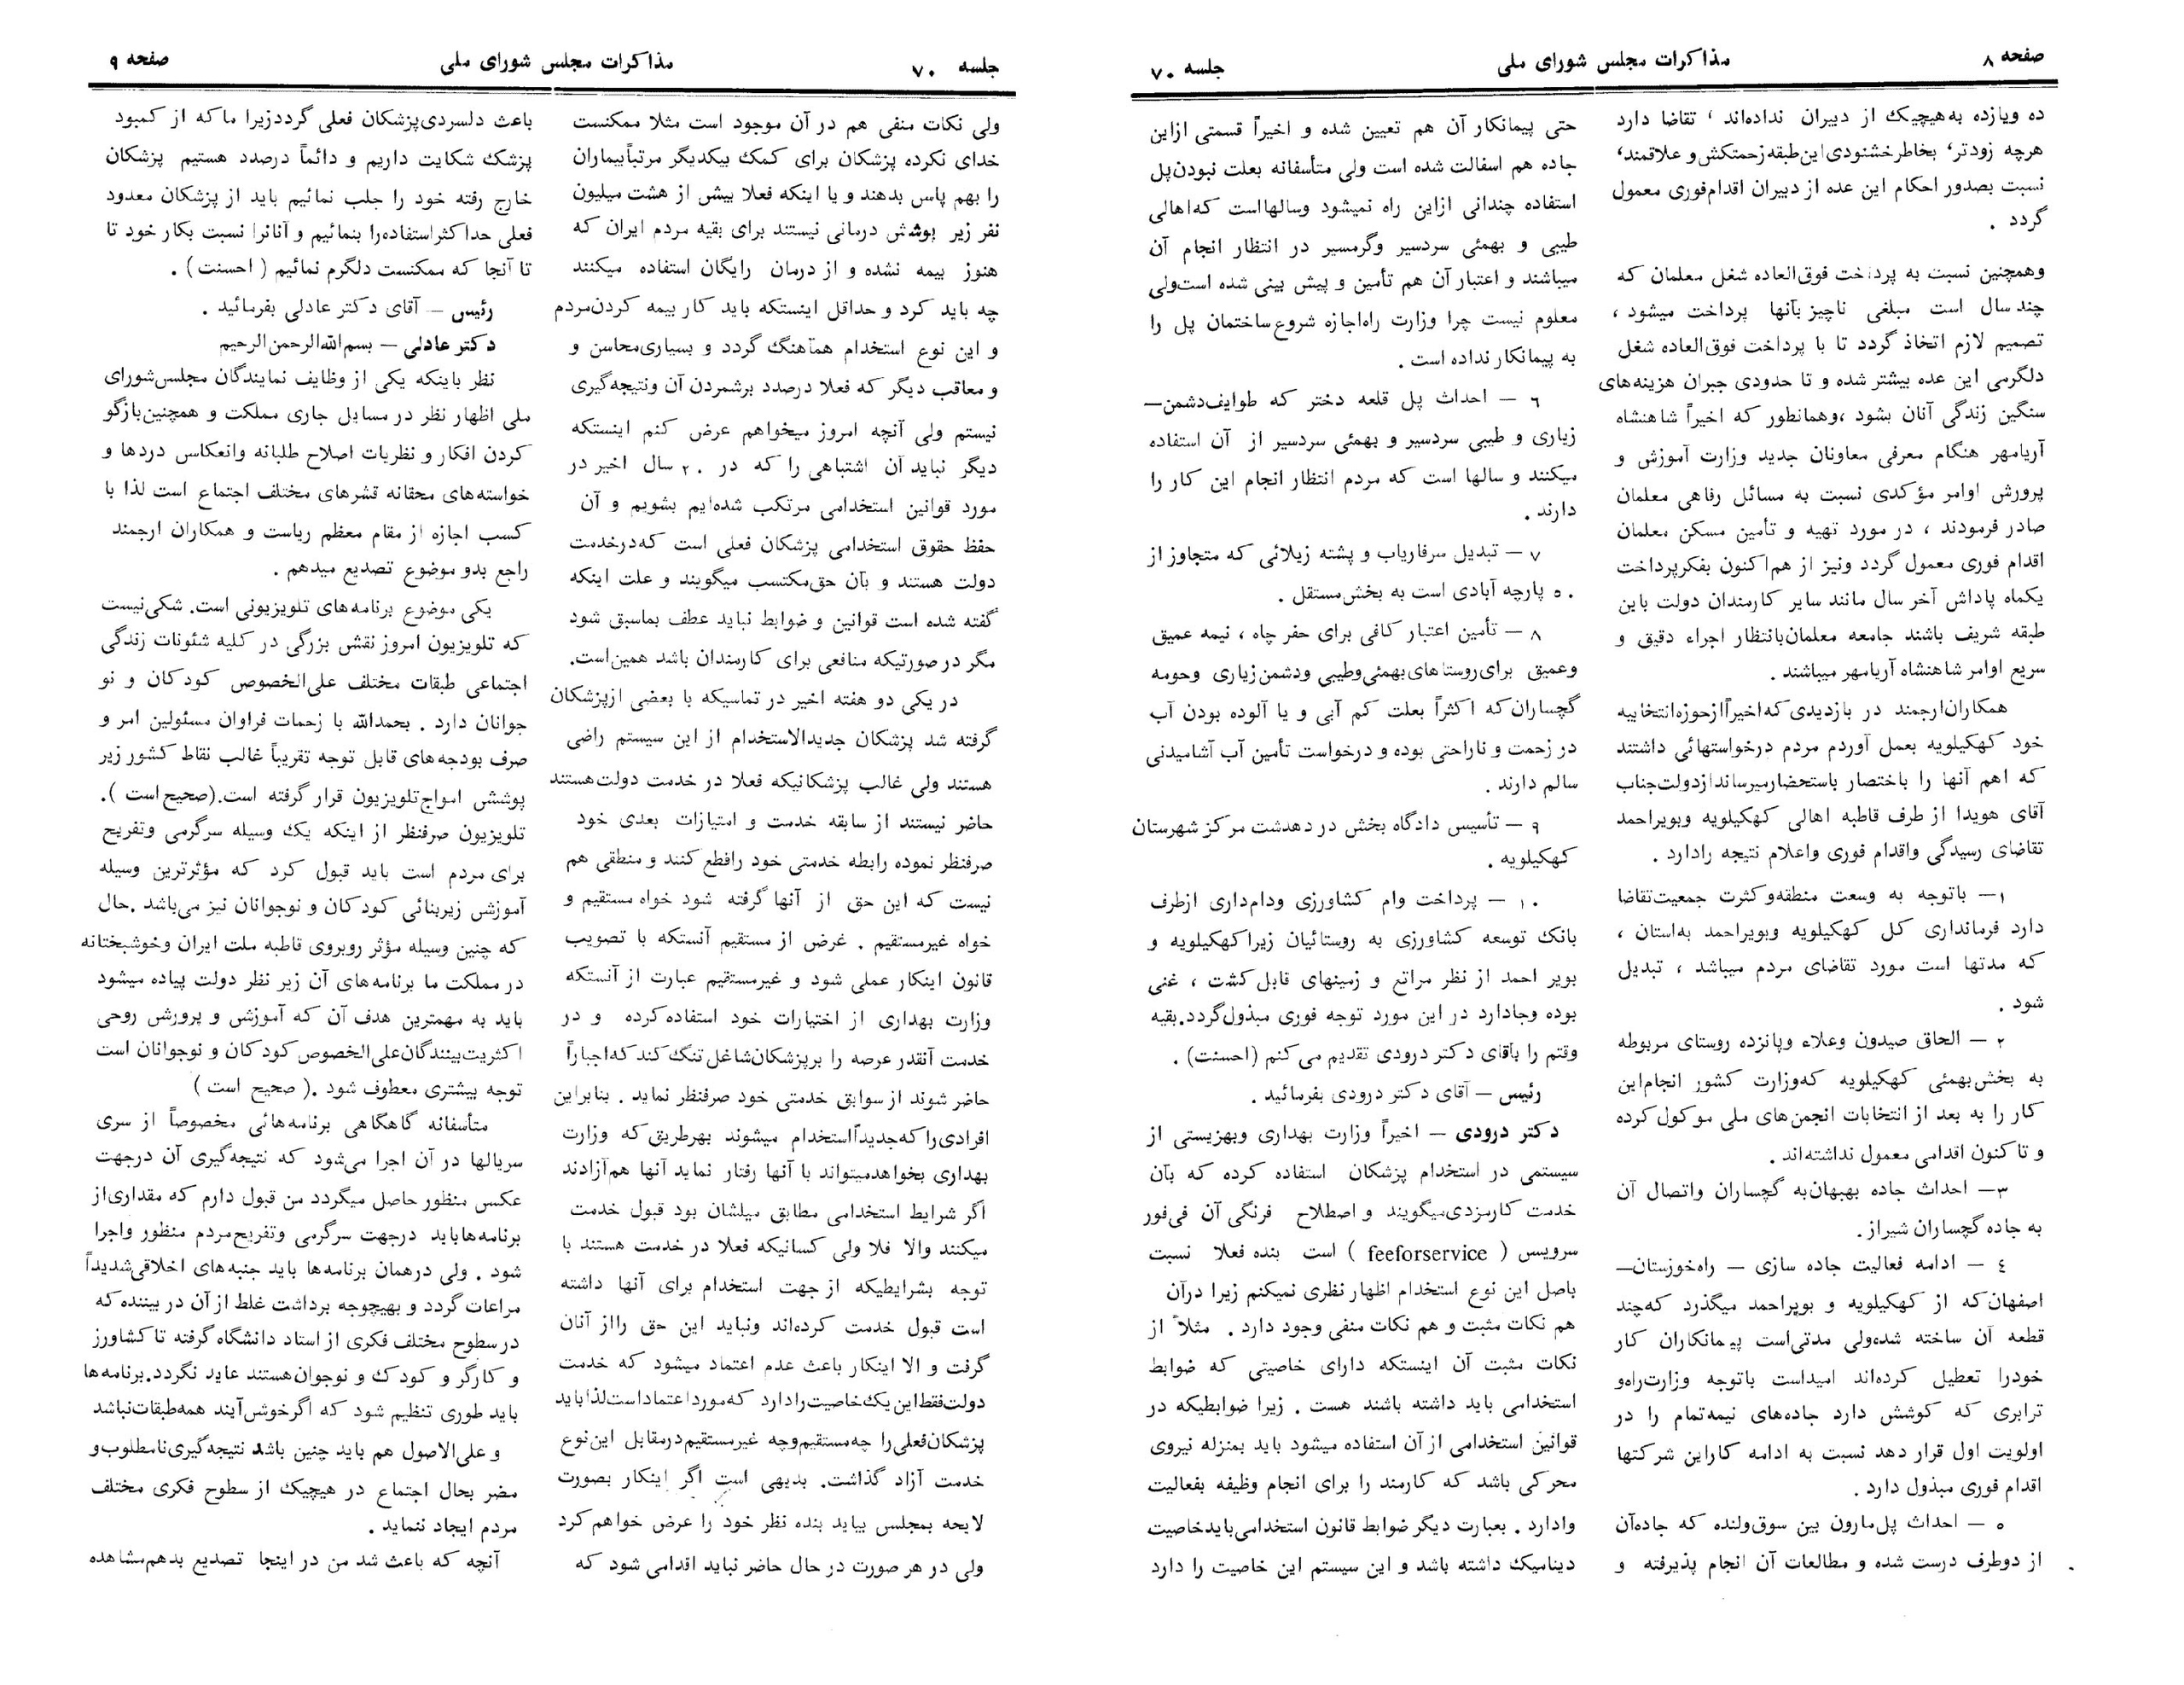 صفحه ۸
مذاکرات مجلس شورای ملی
جلسه ۷۰
ده ویازده به‌هیچیک از دبیران نداده‌اند ، تقاضا دارد
هرچه زودتر، بخاطرخشنودی این‌طبقه‌زحمتکش‌و علاقمند،
نسبت بصدور احکام این عده از دبیران اقدام‌فوری معمول
گردد .
وهمچنین نسبت به پرداخت فوق‌العاده شغل معلمان که
چند سال است مبلغی ناچیز بآنها پرداخت میشود ،
تصمیم لازم اتخاذ گردد تا با پرداخت فوق‌العاده شغل
دلگرمی این عده بیشتر شده و تا حدودی جبران هزینه‌های
سنگین زندگی آنان بشود ،وهمانطور که اخیراً شاهنشاه
آریامهر هنگام معرفی معاونان جدید وزارت آموزش و
پرورش اوامر مؤکدی نسبت به مسائل رفاهی معلمان
صادر فرمودند ، در مورد تهیه و تأمین مسکن معلمان
اقدام فوری معمول گردد ونیز از هم‌اکنون بفکرپرداخت
یکماه پاداش آخر سال مانند سایر کارمندان دولت باین
طبقه شریف باشند جامعه معلمان‌بانتظار اجراء دقیق و
سریع اوامر شاهنشاه آریامهر میباشند .
همکاران‌ارجمند در بازدیدی که‌اخیراًازحوزه‌انتخابیه
خود کهکیلویه بعمل آوردم مردم درخواستهائی داشتند
که اهم آنها را باختصار باستحضارمیرساندازدولت‌جناب
آقای هویدا از طرف قاطبه اهالی کهکیلویه وبویراحمد
تقاضای رسیدگی واقدام فوری واعلام نتیجه رادارد .
۱– باتوجه به وسعت منطقه‌وکثرت جمعیت‌تقاضا
دارد فرمانداری کل کهکیلویه وبویراحمد به‌استان ،
که مدتها است مورد تقاضای مردم میباشد ، تبدیل
شود .
۲ – الحاق صیدون وعلاء وپانزده روستای مربوطه
به بخش‌بهمئی کهکیلویه که‌وزارت کشور انجام‌این
کار را به بعد از انتخابات انجمن‌های ملی موکول‌کرده
و تاکنون اقدامی معمول نداشته‌اند .
۳– احداث جاده بهبهان‌به گچساران واتصال آن
به جاده گچساران شیراز .
٤ – ادامه فعالیت جاده سازی – راه‌خوزستان–
اصفهان‌که از کهکیلویه و بویراحمد میگذرد که‌چند
قطعه آن ساخته شده‌ولی مدتی‌است پیمانکاران کار
خودرا تعطیل کرده‌اند امیداست باتوجه وزارت‌راه‌و
ترابری که کوشش دارد جاده‌های نیمه‌تمام را در
اولویت اول قرار دهد نسبت به ادامه کاراین شرکتها
اقدام فوری مبذول دارد .
۵ – احداث پل‌مارون بین سوق‌ولنده که جاده‌آن
از دوطرف درست شده و مطالعات آن انجام پذیرفته و
حتی پیمانکار آن هم تعیین شده و اخیراً قسمتی ازاین
جاده هم اسفالت شده است ولی متأسفانه بعلت نبودن‌پل
استفاده چندانی ازاین راه نمیشود وسالهااست که‌اهالی
طیبی و بهمئی سردسیر وگرمسیر در انتظار انجام آن
میباشند و اعتبار آن هم تأمین و پیش بینی شده است‌ولی
معلوم نیست چرا وزارت راه‌اجازه شروع‌ساختمان پل را
به پیمانکار نداده است .
۶ – احداث پل قلعه دختر که طوایف‌دشمن–
زیاری و طیبی سردسیر و بهمئی سردسیر از آن استفاده
میکنند و سالها است که مردم انتظار انجام این کار را
دارند .
۷ – تبدیل سرفاریاب و پشته زیلائی که متجاوز از
۵۰ پارچه آبادی است به بخش‌مستقل .
۸ – تأمین اعتبار کافی برای حفر چاه ، نیمه عمیق
وعمیق برای‌روستاهای‌بهمئی‌وطیبی ودشمن‌زیاری وحومه
گچساران‌که اکثراً بعلت کم آبی و یا آلوده بودن آب
در زحمت و ناراحتی بوده و درخواست تأمین آب آشامیدنی
سالم دارند .
۹ – تأسیس دادگاه بخش در دهدشت مرکز شهرستان
کهکیلویه .
۱۰ – پرداخت وام کشاورزی ودام‌داری ازطرف
بانک توسعه کشاورزی به روستائیان زیراکهکیلویه و
بویر احمد از نظر مراتع و زمینهای قابل کشت ، غنی
بوده وجادارد در این مورد توجه فوری مبذول‌گردد.بقیه
وقتم را بآقای دکتر درودی تقدیم می‌کنم (احسنت) .
رئیس – آقای دکتر درودی بفرمائید .
دکتر درودی – اخیراً وزارت بهداری وبهزیستی از
سیستمی در استخدام پزشکان استفاده کرده که بآن
خدمت کارمزدی‌میگویند و اصطلاح فرنگی آن فی‌فور
سرویس ( feeforservice ) است بنده فعلا نسبت
باصل این نوع استخدام اظهار نظری نمیکنم زیرا درآن
هم نکات مثبت و هم نکات منفی وجود دارد . مثلاً از
نکات مثبت آن اینستکه دارای خاصیتی که ضوابط
استخدامی باید داشته باشند هست . زیرا ضوابطیکه در
قوانین استخدامی از آن استفاده میشود باید بمنزله نیروی
محرکی باشد که کارمند را برای انجام وظیفه بفعالیت
وادارد . بعبارت دیگر ضوابط قانون استخدامی‌بایدخاصیت
دینامیک داشته باشد و این سیستم این خاصیت را دارد
جلسه ۷۰
مذاکرات مجلس شورای ملی
صفحه ۹
ولی نکات منفی هم در آن موجود است مثلا ممکنست
خدای نکرده پزشکان برای کمک بیکدیگر مرتباًبیماران
را بهم پاس بدهند و یا اینکه فعلا بیش از هشت میلیون
نفر زیر پوشش درمانی نیستند برای بقیه مردم ایران که
هنوز بیمه نشده و از درمان رایگان استفاده میکنند
چه باید کرد و حداقل اینستکه باید کار بیمه کردن‌مردم
و این نوع استخدام هماهنگ گردد و بسیاری‌محاسن و
و معاقب دیگر که فعلا درصدد برشمردن آن ونتیجه‌گیری
نیستم ولی آنچه امروز میخواهم عرض کنم اینستکه
دیگر نباید آن اشتباهی را که در ۲۰ سال اخیر در
مورد قوانین استخدامی مرتکب شده‌ایم بشویم و آن
حفظ حقوق استخدامی پزشکان فعلی است که‌درخدمت
دولت هستند و بآن حق‌مکتسب میگویند و علت اینکه
گفته شده است قوانین و ضوابط نباید عطف بماسبق شود
مگر در صورتیکه منافعی برای کارمندان باشد همین‌است.
در یکی دو هفته اخیر در تماسیکه با بعضی ازپزشکان
گرفته شد پزشکان جدیدالاستخدام از این سیستم راضی
هستند ولی غالب پزشکانیکه فعلا در خدمت دولت‌هستند
حاضر نیستند از سابقه خدمت و امتیازات بعدی خود
صرفنظر نموده رابطه خدمتی خود راقطع کنند و منطقی هم
نیست که این حق از آنها گرفته شود خواه مستقیم و
خواه غیرمستقیم . غرض از مستقیم آنستکه با تصویب
قانون اینکار عملی شود و غیرمستقیم عبارت از آنستکه
وزارت بهداری از اختیارات خود استفاده‌کرده و در
خدمت آنقدر عرصه را برپزشکان‌شاغل تنگ کند که‌اجباراً
حاضر شوند از سوابق خدمتی خود صرفنظر نماید . بنابراین
افرادی‌راکه‌جدیداًاستخدام میشوند بهرطریق‌که وزارت
بهداری بخواهدمیتواند با آنها رفتار نماید آنها هم‌آزادند
اگر شرایط استخدامی مطابق میلشان بود قبول خدمت
میکنند والا فلا ولی کسانیکه فعلا در خدمت هستند با
توجه بشرایطیکه ازجهت استخدام برای آنها داشته
است قبول خدمت کرده‌اند ونباید این حق رااز آنان
گرفت و الا اینکار باعث عدم اعتماد میشود که خدمت
دولت‌فقط‌این‌یک‌خاصیت‌رادارد که‌مورداعتماداست‌لذاباید
پزشکان‌فعلی‌را چه‌مستقیم‌وچه غیرمستقیم‌درمقابل این‌نوع
خدمت آزاد گذاشت. بدیهی است اگر اینکار بصورت
لایحه بمجلس بیاید بنده نظر خود را عرض خواهم‌کرد
ولی در هر صورت در حال حاضر نباید اقدامی شود که
باعث دلسردی‌پزشکان فعلی گرددزیرا ماکه از کمبود
پزشک شکایت داریم و دائماً درصدد هستیم پزشکان
خارج رفته خود را جلب نمائیم باید از پزشکان معدود
فعلی حداکثراستفاده‌را بنمائیم و آنانرا نسبت بکار خود تا
تا آنجا که ممکنست دلگرم نمائیم ( احسنت ) .
رئیس – آقای دکتر عادلی بفرمائید .
دکتر عادلی – بسم‌الله‌الرحمن‌الرحیم
نظر باینکه یکی از وظایف نمایندگان مجلس‌شورای
ملی اظهار نظر در مسایل جاری مملکت و همچنین‌بازگو
کردن افکار و نظریات اصلاح طلبانه وانعکاس دردها و
خواسته‌های محقانه قشرهای مختلف اجتماع است لذا با
کسب اجازه از مقام معظم ریاست و همکاران ارجمند
راجع بدو موضوع تصدیع میدهم .
یکی موضوع برنامه‌های تلویزیونی است. شکی‌نیست
که تلویزیون امروز نقش بزرگی در کلیه شئونات زندگی
اجتماعی طبقات مختلف علی‌الخصوص کودکان و نو
جوانان دارد . بحمدالله با زحمات فراوان مسئولین امر و
صرف بودجه‌های قابل توجه تقریباً غالب نقاط کشور زیر
پوشش امواج‌تلویزیون قرار گرفته است.(صحیح‌است ).
تلویزیون صرفنظر از اینکه یک وسیله سرگرمی وتفریح
برای مردم است باید قبول کرد که مؤثرترین وسیله
آموزش زیربنائی کودکان و نوجوانان نیز می‌باشد .حال
که چنین وسیله مؤثر روبروی قاطبه ملت ایران وخوشبختانه
در مملکت ما برنامه‌های آن زیر نظر دولت پیاده میشود
باید به مهمترین هدف آن که آموزش و پرورش روحی
اکثریت‌بینندگان‌علی‌الخصوص‌کودکان و نوجوانان است
توجه بیشتری معطوف شود .( صحیح است )
متأسفانه گاهگاهی برنامه‌هائی مخصوصاً از سری
سریالها در آن اجرا می‌شود که نتیجه‌گیری آن درجهت
عکس منظور حاصل میگردد من قبول دارم که مقداری‌از
برنامه‌هاباید درجهت سرگرمی وتفریح‌مردم منظور واجرا
شود . ولی درهمان برنامه‌ها باید جنبه‌های اخلاقی‌شدیداً
مراعات گردد و بهیچوجه برداشت غلط از آن در بیننده که
در سطوح مختلف فکری از استاد دانشگاه گرفته تاکشاورز
و کارگر و کودک و نوجوان‌هستند عاید نگردد.برنامه‌ها
باید طوری تنظیم شود که اگرخوش‌آیند همه‌طبقات‌نباشد
و علی‌الاصول هم باید چنین باشد نتیجه‌گیری‌نامطلوب‌و
مضر بحال اجتماع در هیچیک از سطوح فکری مختلف
مردم ایجاد ننماید .
آنچه که باعث شد من در اینجا تصدیع بدهم‌مشاهده